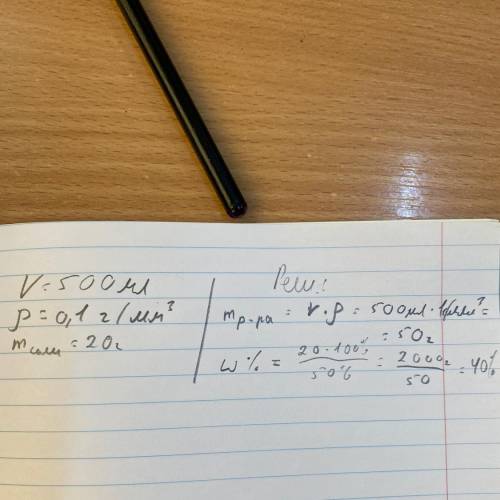 V = 500 мл
ρ = 0,1 г/мм³
m соли = 20г
Реш:
m р-ра = V · ρ = 500 мл · 1г/мм³ =
= 50г
ω % = 20 · 100% / 50% = 2000г / 50 = 40%